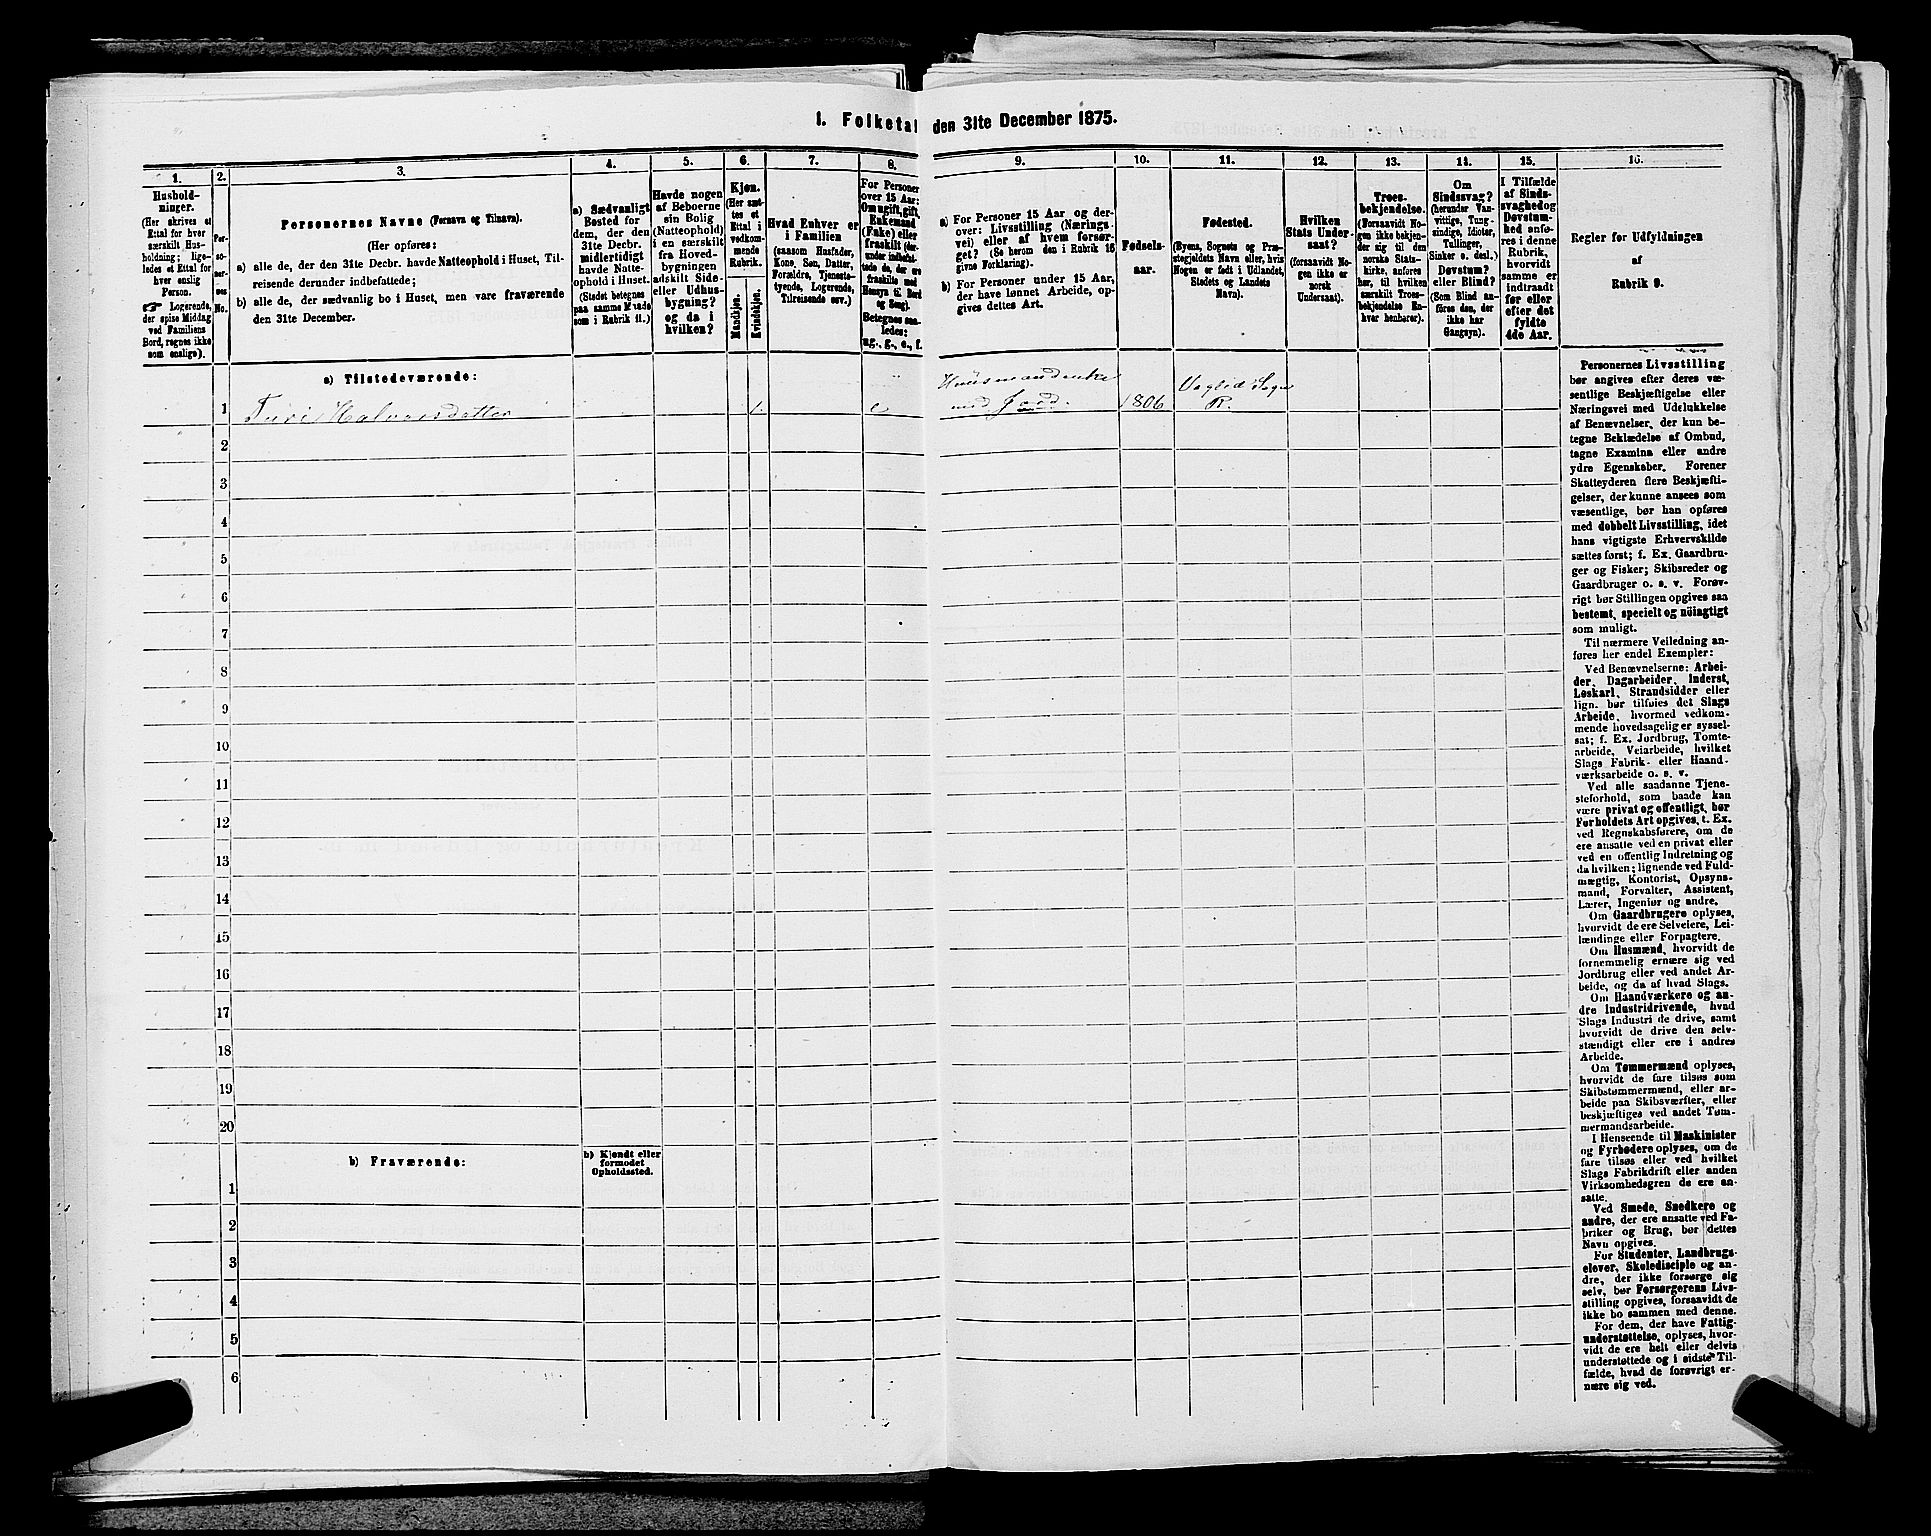 1. Folketal den 31te December 1875.
1.
Hushold-
ninger.
(Her skrives et
Ettal for hver
særskilt Hus-
holdning; lige-
ledes et Ettal for
hver enslig
Person.
☞ Logerende,
der spise Middag
ved Familiens
Bord, regnes ikke
som enslige).
2.
Per-
so-
ner-
nes
No.
3.
Personernes Navne (Fornavn og Tilnavn).
(Her opføres:
a) alle de, der den 31te Decbr. havde Natteophold i Huset, Til-
reisende derunder indbefattede;
b) alle de, der sædvanlig bo i Huset, men vare fraværende
den 31te December.
4.
a) Sædvanligt
Bosted for
dem, der den
31te Decbr.
midlertidigt
havde Natte-
ophold i Huset.
(Stedet betegnes
paa samme Maade
som i Rubrik 11.)
5.
Havde nogen
af Beboerne
sin Bolig
(Natteophold)
i en særskilt
fra Hoved-
bygningen
adskilt Side-
eller Udhus-
bygning?
og da i
hvilken?
6.
Kjøn.
(Her sæt-
tes et
Ettal i
vedkom-
mende
Rubrik.
Mandkjøn.
Kvindekjøn.
7.
Hvad Enhver er
i Familien
(saasom Husfader,
Kone, Søn, Datter,
Forældre, Tjeneste-
tyende, Logerende,
Tilreisende osv.)
8.
For Personer
over 15 Aar:
Om ugift, gift,
Enkemand
(Enke) eller
fraskilt (der-
under indbefat-
tede de, der ere
fraskilte med
Hensyn til Bord
og Seng).
Betegnes saa-
ledes:
ug., g., e., f.
9.
a) For Personer 15 Aar og der-
over: Livsstilling (Nærings-
vei) eller af hvem forsør-
get? (Se herom den i Rubrik 16
givne Forklaring).
b) For Personer under 15 Aar,
der have lønnet Arbeide, op-
gives dettes Art.
10.
Fødsels-
aar.
11.
Fødested.
(Byens, Sognets og Præ-
stegjeldets Navn eller, hvis
Nogen er født i Udlandet,
Stedets og Landets
Navn).
12.
Hvilken
Stats Under-
saat?
(forsaavidt No-
gen ikke er
norsk
Undersaat).
13.
Troes-
bekjendelse.
(Forsaavidt No-
gen ikke bekjen-
der sig til den
norske Stats-
kirke, anføres
her, til hvilken
særskilt Troes-
bekjendelse En-
hver henhører).
14.
Om
Sindssvag?
(herunder Van-
vittige, Tung-
sindige, Idioter,
Tullinger,
Sinker o. desl.)
Døvstum?
eller Blind?
(Som Blind an-
føres den, der
ikke har
Gangsyn).
15.
I Tilfælde
af Sinds-
svaghed og
Døvstum-
hed anfø-
res i denne
Rubrik,
hvorvidt
samme er
indtraadt
før eller
efter det
fyldte
4de Aar.
16.
Regler for Udfyldningen
af
Rubrik 9.
a) Tilstedeværende:
1 Turi Halvorsdatter 1. e Huusmandenke
med Jord. 1806 Uvglid Sogn
R.
2
3
4
5
6
7
8
9
10
11
12
13
14
15
16
17
18
19
20
b) Fraværende:
b) Kjendt eller
formodet
Opholdssted.
1
2
3
4
5
6
Personernes Livsstilling
bør angives efter deres væ-
sentlige Beskjæftigelse eller
Næringsvei med Udelukkelse
af Benævnelser, der kun be-
tegne Beklædelse af Ombud,
tagne Examina eller andre
ydre Egenskaber. Forener
Skatteyderen flere Beskjæfti-
gelser, der kunne ansees som
væsentlige, bør han opføres
med dobbelt Livsstilling, idet
hans vigtigste Erhvervskilde
sættes først; f. Ex. Gaardbru-
ger og Fisker; Skibsreder og
Gaardbruger o. s. v. Forøv-
rigt bør Stillingen opgives saa
bestemt, specielt og nöiagtigt
som muligt.
Til nærmere Veiledning an-
føres her endel Exempler:
Ved Benævnelserne: Arbei-
der, Dagarbeider, Inderst,
Løskarl, Strandsidder eller
lign. bør tilføies det Slags
Arbeide, hvormed vedkom-
mende hovedsagelig er syssel-
sat; f. Ex. Jordbrug, Tomte-
arbeide, Veiarbeide, hvilket
Slags Fabrik- eller Haand-
værksarbeide o. s. v.
Ved alle saadanne Tjene-
steforhold, som baade kan
være privat og offentligt, bør
Forholdets Art opgives, t. Ex.
ved Regnskabsførere, om de
ere ansatte ved en privat eller
ved en offentlig Indretning og
da hvilken; lignende ved Fuld-
mægtig, Kontorist, Opsyns-
mand, Forvalter, Assistent,
Lærer, Ingeniør og andre.
Om Gaardbrugere oplyses,
hvorvidt de ere Selveiere, Lei-
lændinge eller Forpagtere.
Om Husmænd, hvorvidt de
fornemmelig ernære sig ved
Jordbrug eller ved andet Ar-
beide, og da af hvad Slags.
Om Haandværkere og an-
dre Industridrivende, hvad
Slags Industri de drive, samt
hvorvidt de drive den selv-
stændigt eller ere i andres
Arbeide.
Om Tømmermænd oplyses,
hvorvidt de fare tilsøs som
Skibstømmermænd, eller ar-
beide paa Skibsværfter, eller
beskjæftiges ved andet Tøm-
mermandsarbeide.
I Henseende til Maskinister
og Fyrbødere oplyses, om de
fare tilsøs eller ved hvilket
Slags Fabrikdrift eller anden
Virksomhedsgren de ere an-
satte.
Ved Smede, Snedkere og
andre, der ere ansatte ved Fa-
briker og Brug, bør dettes
Navn opgives.
For Studenter, Landbrugs-
elever, Skoledisciple og an-
dre, der ikke forsørge sig
selv, bør Forsørgerens Livs-
stilling opgives, forsaavidt de
ikke bo sammen med denne.
For dem, der have Fattig-
understøttelse, oplyses, hvor-
vidt de ere helt eller delvis
understøttede og i sidste Til-
fælde, hvad de forøvrigt er-
nære sig ved.